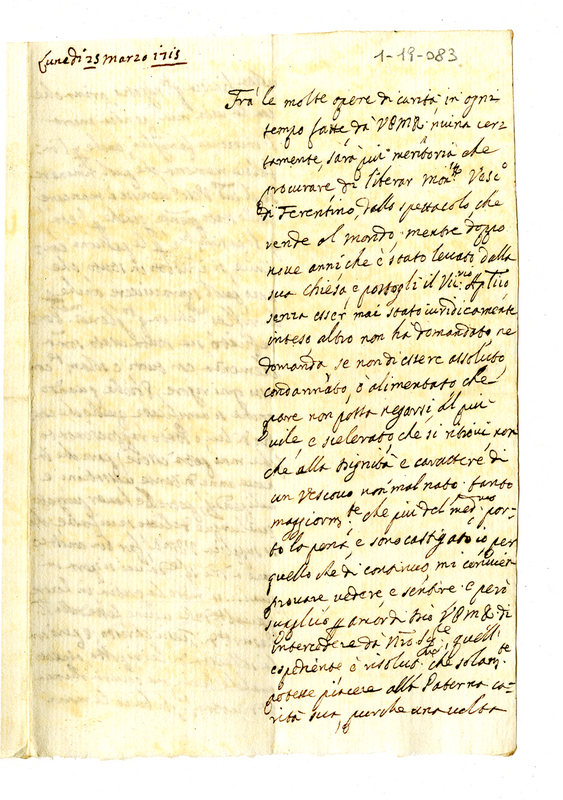 Lunedi 25 Marzo 1715
1-19-083
Frà le molte opere di carità in ogni
tempo fatte dà V E M R niuna cer=
tamente, sarà più meritoria che
procurare di liberar Mon.re Vesc.o
di Ferentino, dallo spettacolo, che
rende al mondo, mentre doppo
nove anni che è stato levato dalla
sua chiesa e postogli il Vic.rio Ap.lico
senza esser mai stato iuridicam.te
inteso altro non ha domandato, ne
domanda se non di essere assoluto
condannato, e alimentato che
pare non possa negarsi, al più
vile e scelerato che si ritrovi non
che alla dignità e carattere di
un Vescovo non mal nato. tanto
maggiorm.te che più del med.mo por=
to la pena, e sono castigato io per
quello che di continuo mi convien
provare vedere e sentire e però
supplico p amor di Dio V E M R di
intercedere da N.ro Sig.re quell'
espediente e risoluz.ne che solam.te
potesse piacere alla Paterna ca=
rità sua, purche una volta